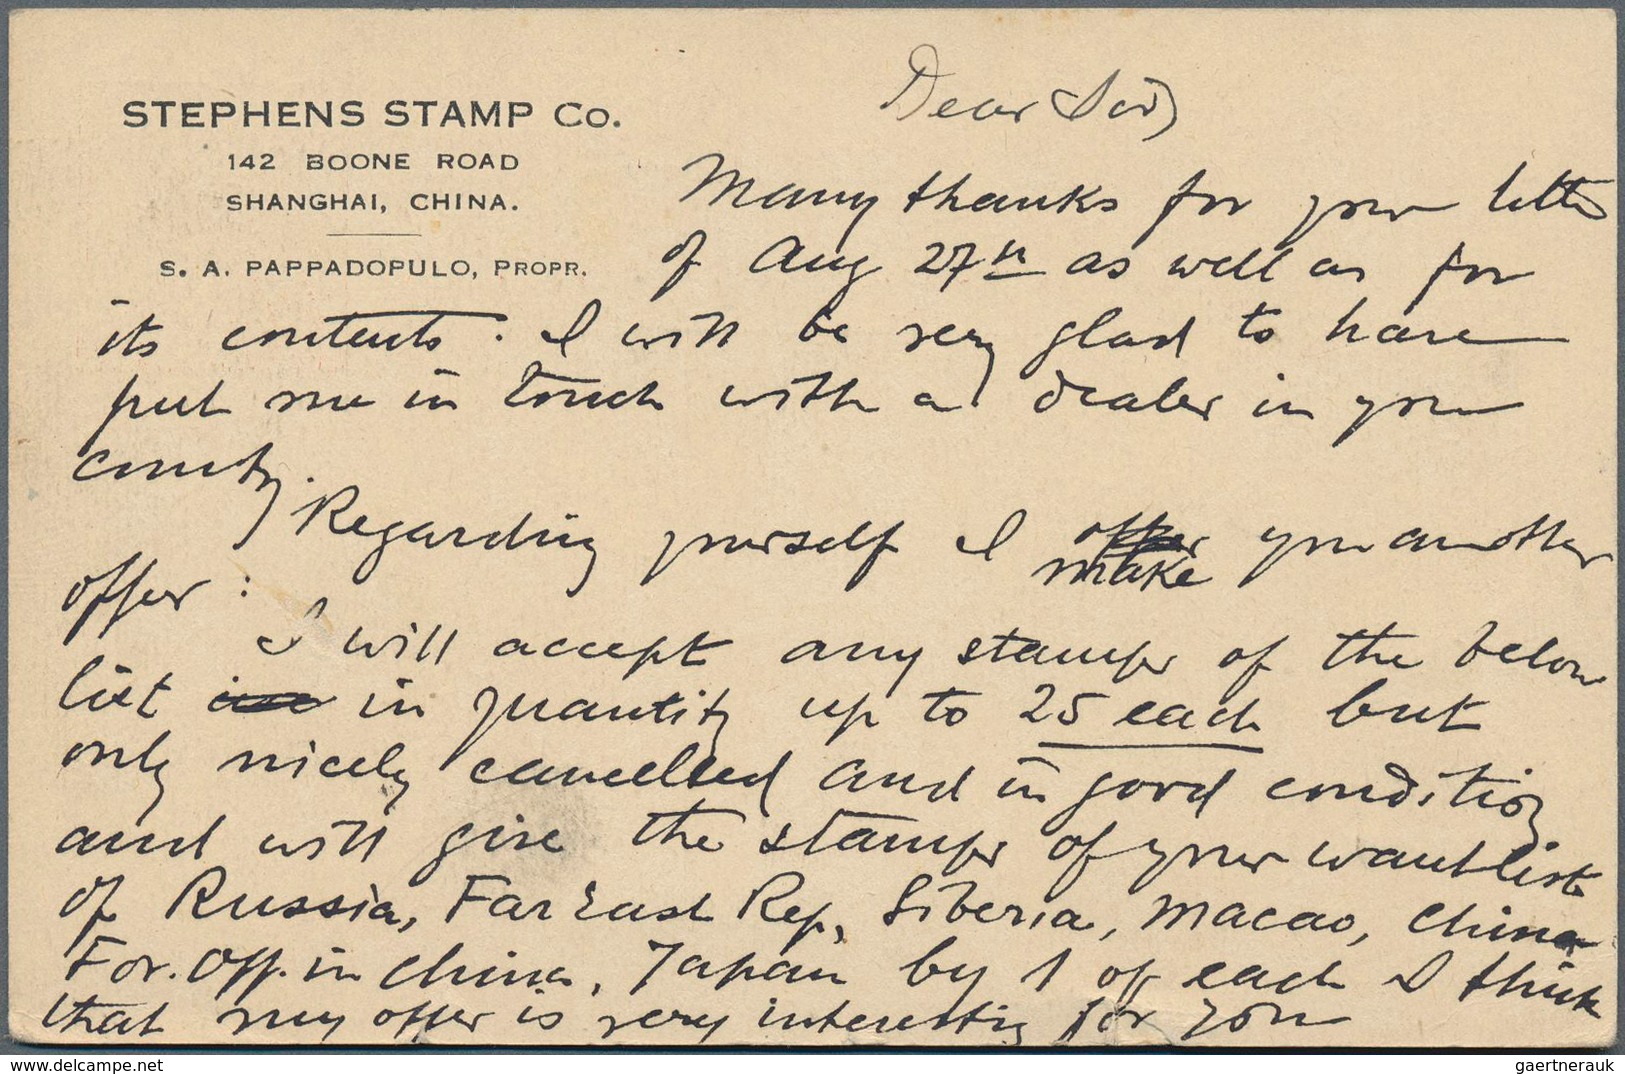 STEPHENS STAMP Co.
142 BOONE ROAD
SHANGHAI, CHINA.
S. A. PAPPADOPULO, PROPR.
Dear Sir,
Many thanks for your letter
of Aug 27th as well as for
its contents. I will be very glad to have
put me in touch with a dealer in your
country.
Regarding yourself I offer you another
make
offer :
I will accept any stamps of the below
list in quantity up to 25 each but
only nicely cancelled and in good condition
and will give the stamps of your wantlist
of Russia, Far East Rep, Siberia, Macao, China
For. Off. in China, Japan by 1 of each I think
that my offer is very interesting for you
www.delcampe.net
gaertnerauk